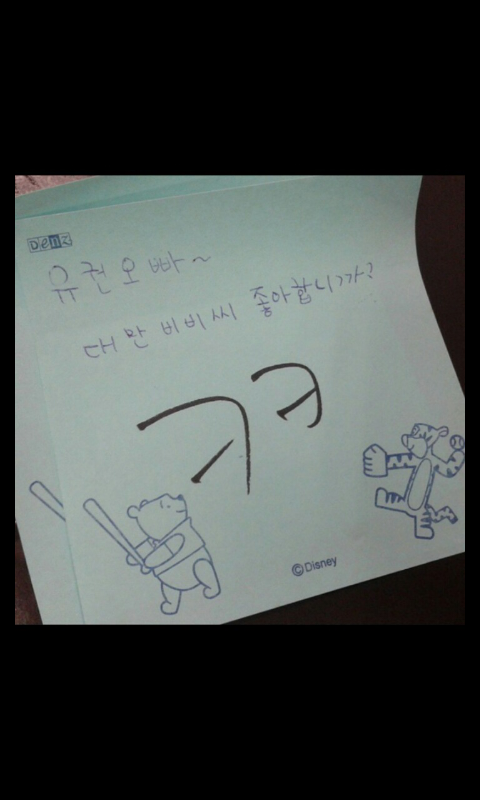 Denz
유권오빠~
대만비비씨 좋아합니까?
ㅋㅋ
©Disney